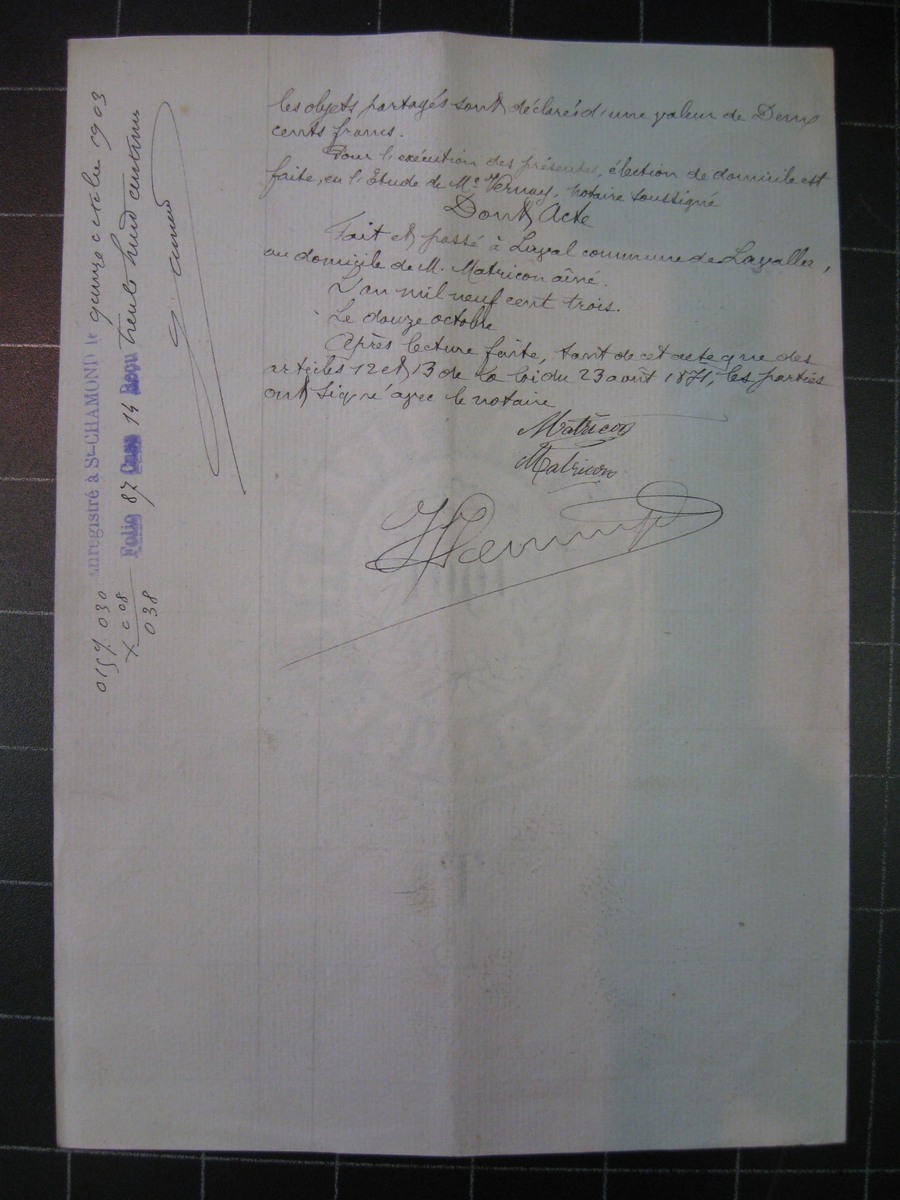 les objets partagés sont déclarés d'une valeur de Deux
cents francs.
Pour l'exécution des présentes, élection de domicile est
faite, en l'Etude de Me Vernay, notaire soussigné
Dont Acte
Fait et passé à Layal commune de Lavalla,
au domicile de M. Matricon aîné.
L'an mil neuf cent trois.
Le douze octobre
Après lecture faite, tant de cet acte que des
articles 12 et 13 de la loi du 23 août 1871, les parties
ont signé avec le notaire
Matricon
Matricon
Enregistré à St-CHAMOND le quinze octobre 1903
Folio 87 Case 14 Reçu trente huit centimes
030
008
038